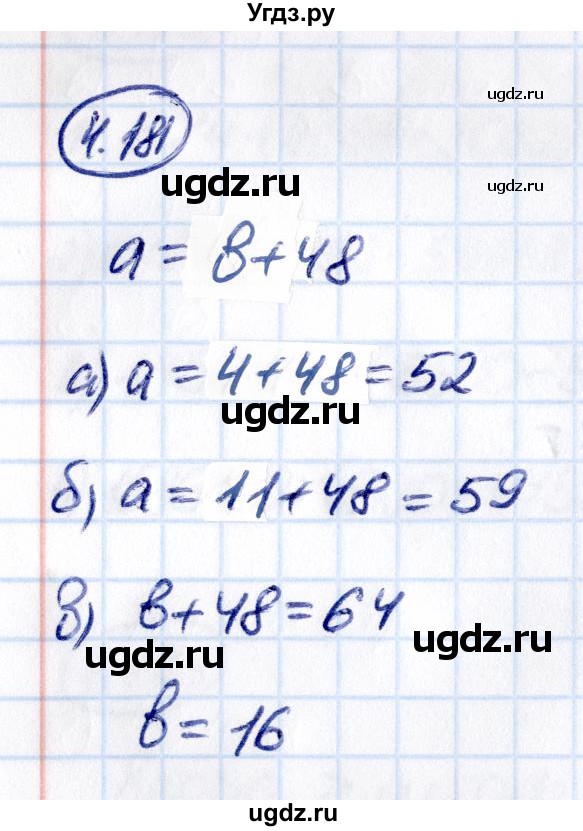 Угдз.ру
ugdz.ru
4.181
ugdz.ru
a = в + 48
а) a = 4 + 48 = 52
ugdz.ru
б) a = 11 + 48 = 59
в) в + 48 = 64
ugdz.ru
ugdz.ru
в = 16
ugdz.ru